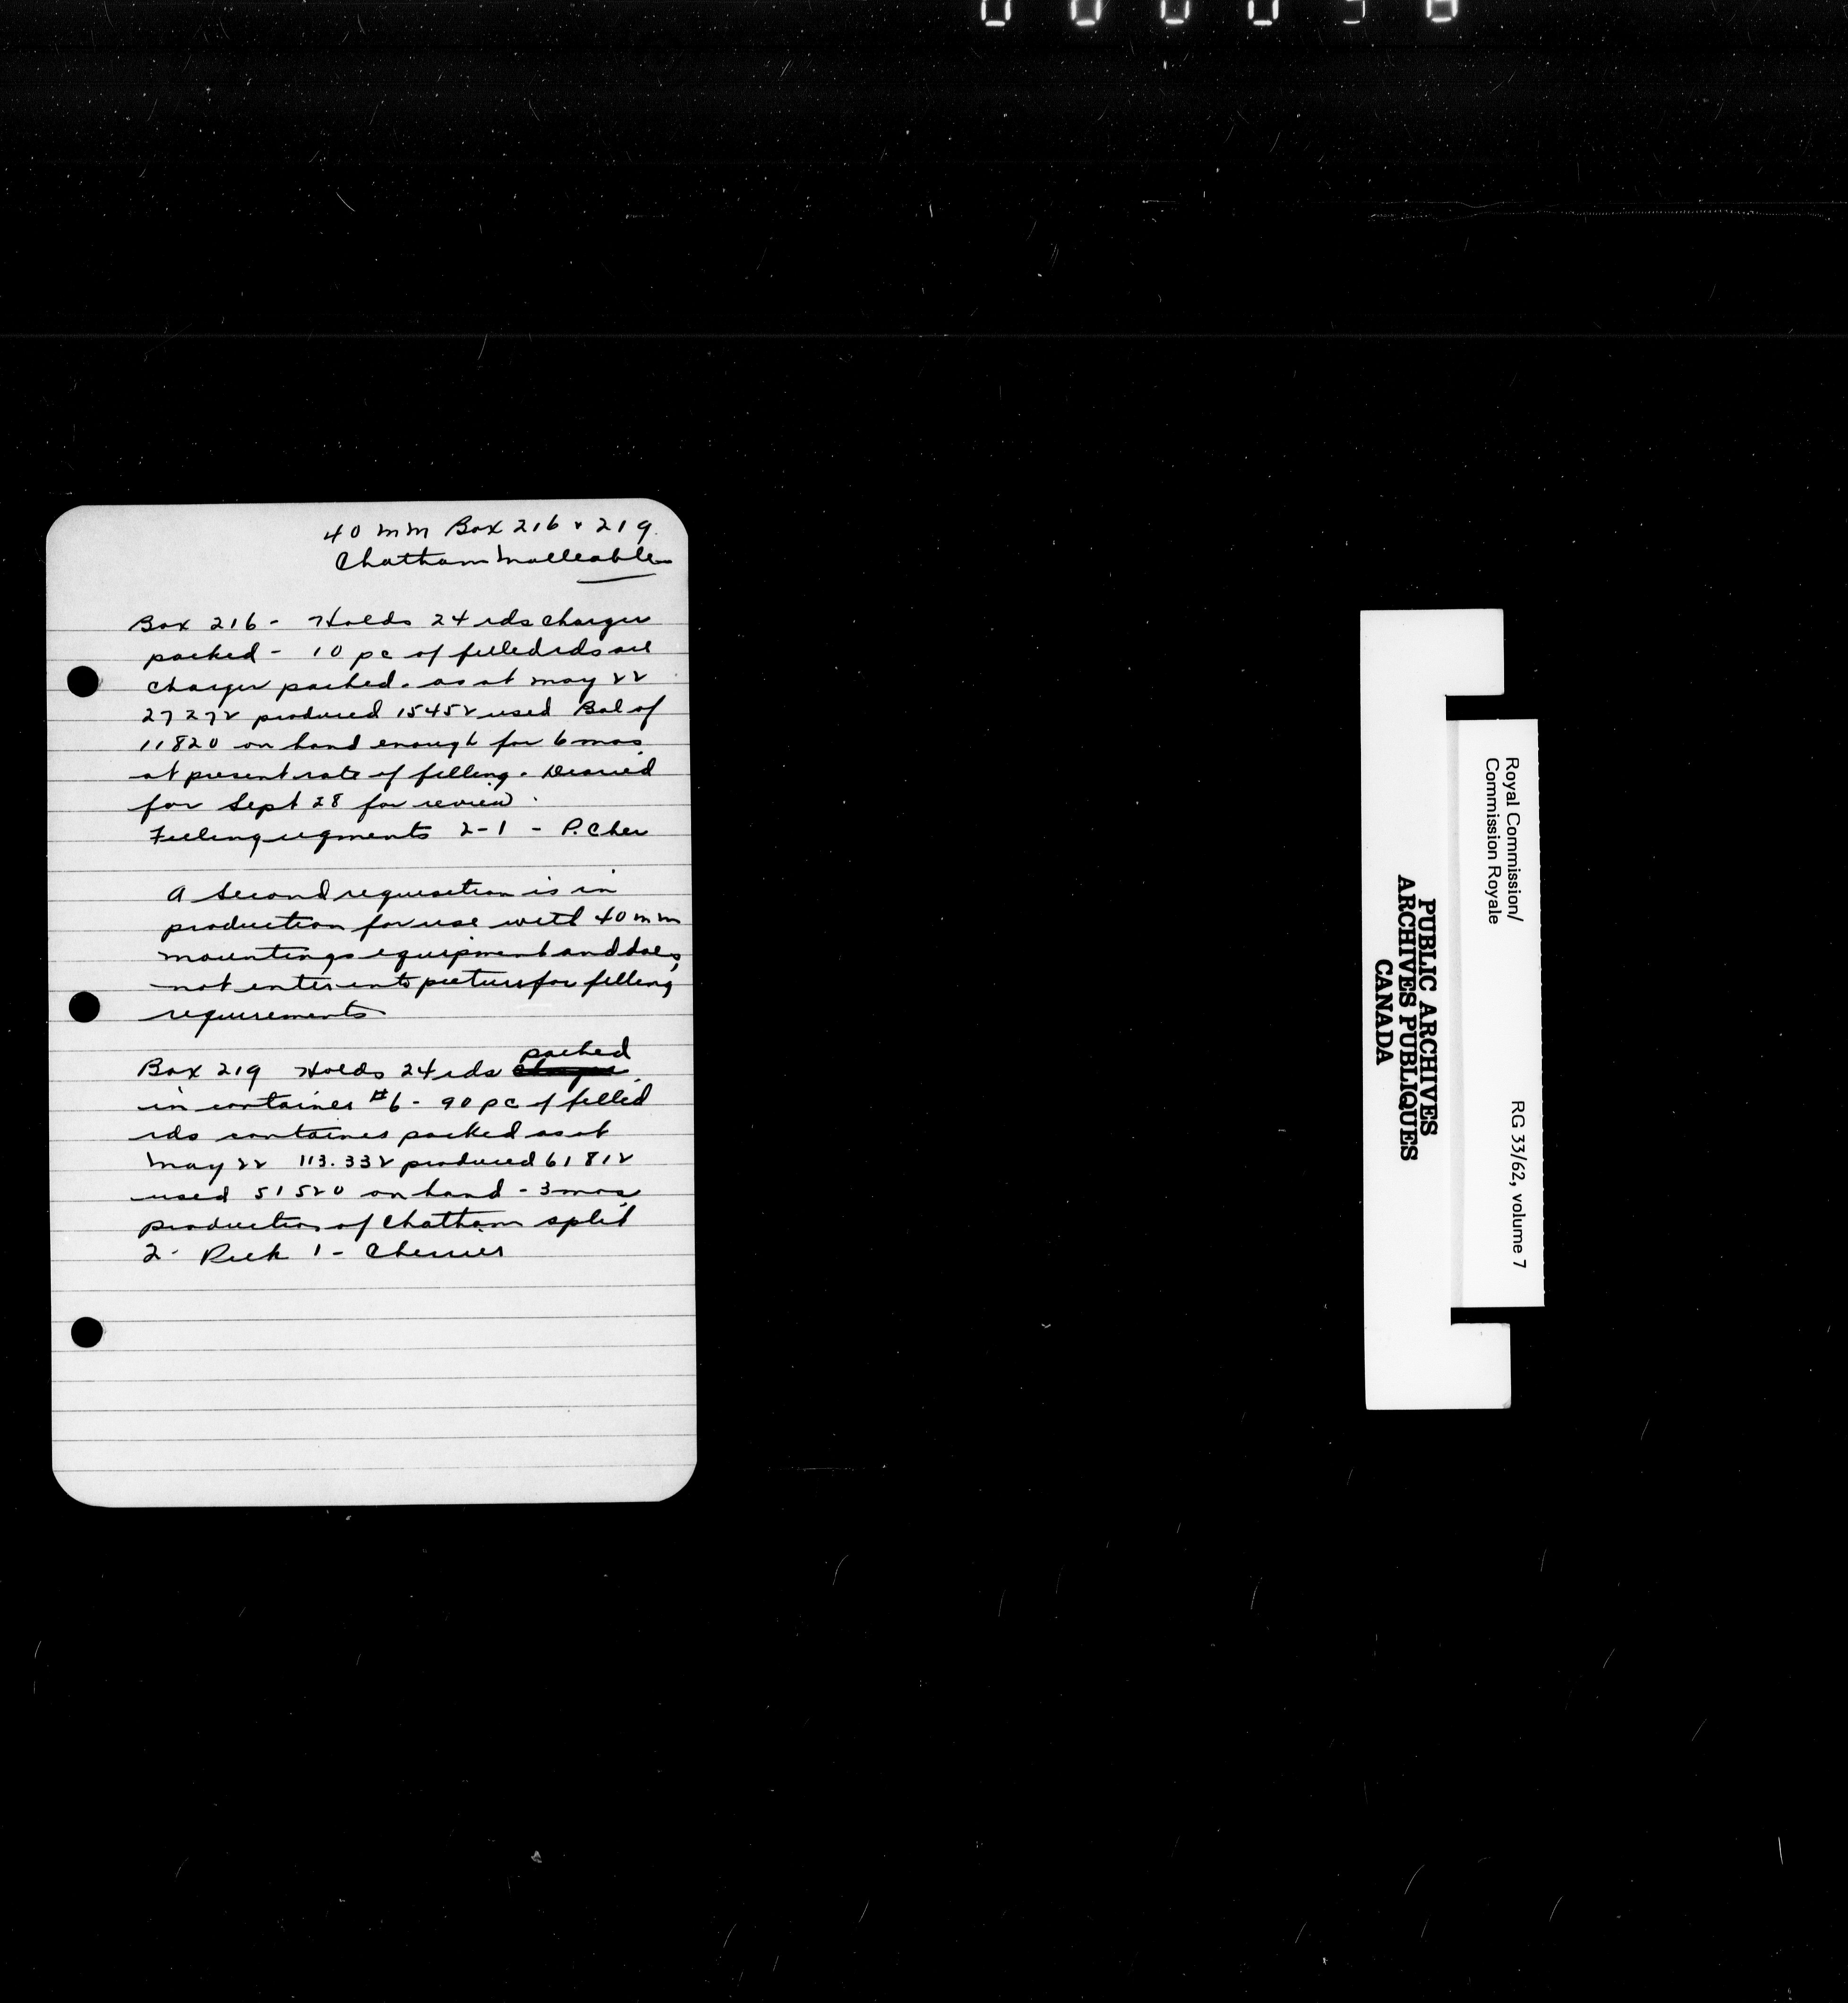 40 mm Box 216 & 219.
Chatham Malleable
Box 216 - Holds 24 rds charger
packed - 10 pc of filled rds are
charger packed. as at May 22
27272 produced 15452 used Bal of
11820 on hand enough for 6 mos.
at present rate of filling.
for Sept 28 for review.
Filling 2-1 - P. Cher
A second requisition is in
production for use with 40 mm
mountings equipment and does
not enter into picture for filling
requirements
packed
Box 219 Holds 24 rds charger
in container #6 - 90 pc of filled
rds container packed as at
May 22 113.332 produced 61812
used 51520 on hand - 3 mos.
production of Chatham split
2- 1 - Cherrier
PUBLIC ARCHIVES
ARCHIVES PUBLIQUES
CANADA
Royal Commission/
Commission Royale
RG 33/62, volume 7